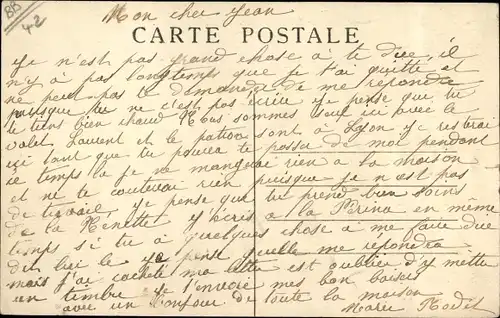 BB
42
Mon cher Jean
CARTE POSTALE
Je n'est pas grand chose à te dire il
n'y à pas longtemps que je t'ai quitté et
ne peut pas te demander de me repondre
puisque tu ne c'est pas écrire je pense que tu
te tiens bien chaud Nous sommes seul ici avec le
valet Laurent et le patron sont à Lyon j'y restrai
ici tant que tu pourra te passer de moi pendant
ce temps la je ne mangerai rien a la maison
et ne te couterai rien puisque je n'est pas
de travail je pense que tu prend bien soins
de la Nénette j'y ecris a la Perina en même
temps si tu à quelques chose a me faire dire
dit lui le je pense quelle me repondra
mais j'ai cacheté ma lettre est oublier d'y mettre
un timbre je t'envoie mes bon baisers
avec un bonjour de toute la maison
Marie